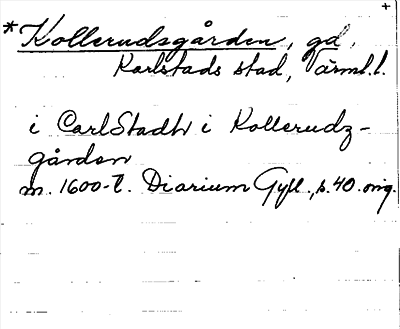 +
*Kollerudsgården, gd,
Karlstads stad, Värml.l.
i CarlStadh i Kollerudz-
gården
m. 1600-t. Diarium Gyll., s. 40. orig.